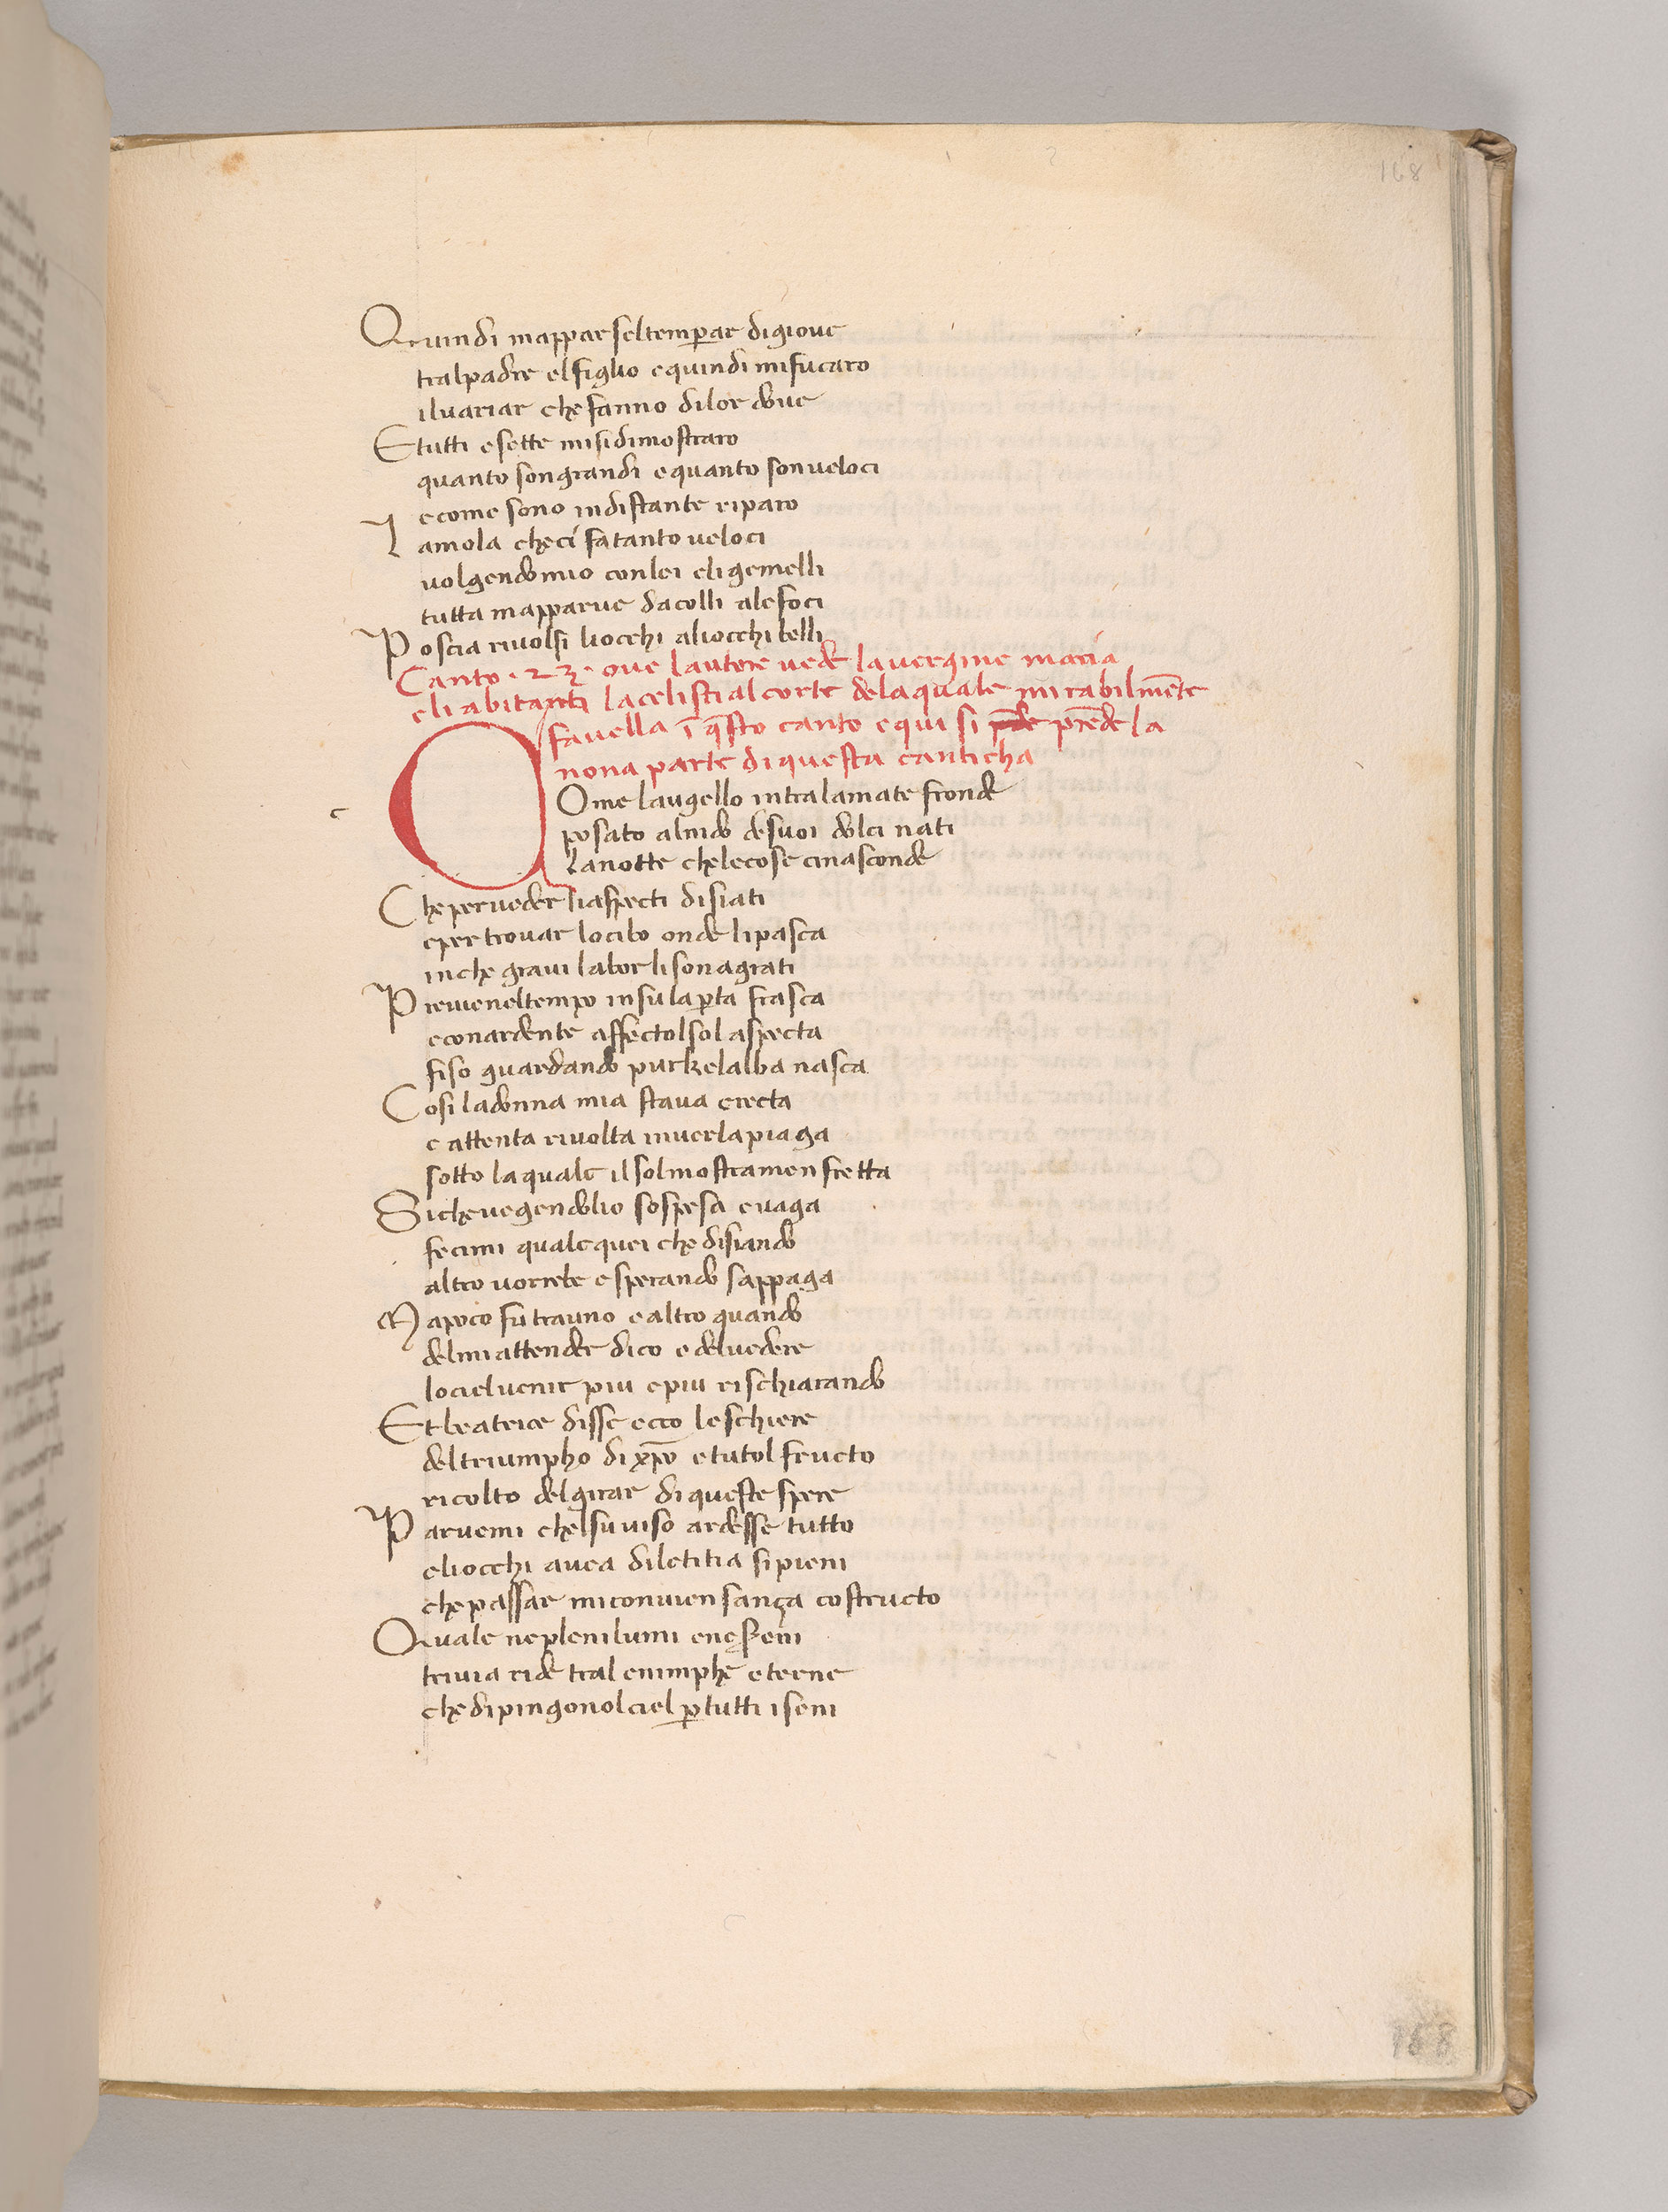 168
Quindi mappar seltemperar digioue
tralpadre elfiglio equindi mifucaro
iluariar che fanno dilor doue
Etutti esette misidimostraro
quanto songrandi equanto sonueloci
ecome sono indistante riparo
Lamola checi fatanto ueloci
uolgendomio conlei eligemelli
tutta mapparue dacolli alefoci
Poscia riuolsi liocchi aliocchi belli
Canto . 23 . oue lautore uede lauergine maria
eli abitanti lacelistial corte delaquale mirabilmēte
fauella ī q̄sto canto equi si prēde la
nona parte di questa canticha
c
Ome laugello intralamate fronde
posato alnido desuoi dolci nati
Lanotte chelecose cinasconde
Che perueder liaspecti disiati
eper trouar locibo onde lipasca
inche graui labor lisonagrati
Preuieneltempo insulap̱ta frasca
econardente affectolsol aspecta
fiso guardando purkelalba nasca
Cosi ladonna mia staua erecta
e attenta riuolta inuerlapiaga
sotto laquale ilsolmostramen fretta
Sicheuegendolio sospesa euaga
fecimi qualequei che disiando
altro uorrebe esperando sappaga
Mapoco fu trauno ealtro quando
delmiattender dico e deluedere
lociel uenir piu epiu rischiarando
Et beatrice disse ecco leschiere
deltriumpho di xp̄o etutol fructo
ricolto delgirar di queste spere
Paruemi chelsuuiso ardesse tutto
eliocchi auea diletitia sipieni
chepassar miconuien sança costructo
Quale neplenilunii eneSeni
triuia ride tral eninphe eterne
che dipingonolciel p̱tutti iseni
168